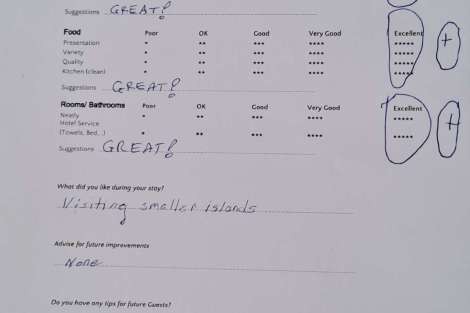 Suggestions GREAT!
Food Poor OK Good Very Good Excellent
Presentation * ** *** **** ***** +
Variety * ** *** **** *****
Quality * ** *** **** *****
Kitchen (clean) * ** *** **** *****
Suggestions GREAT!
Rooms/ Bathrooms Poor OK Good Very Good Excellent
Neatly * ** *** **** ***** +
Hotel Service
(Towels, Bed, ..) * ** *** **** *****
Suggestions GREAT!
What did you like during your stay?
Visiting smaller islands
Advise for future improvements
None
Do you have any tips for future Guests?